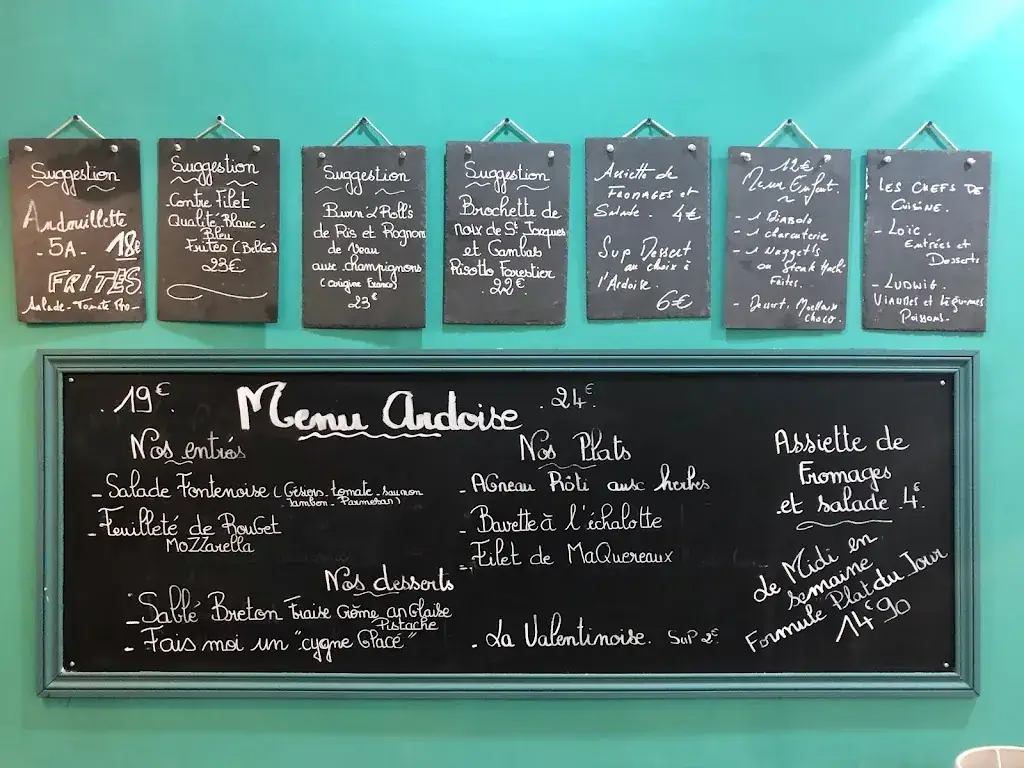 Suggestion
Andouillette
- 5A - 18€
FRITES
Salade - Tomate
Suggestion
Contre Filet
Qualité Blanc.
Bleu
Frites (Belge)
23€
Suggestion
de Ris et Rognon
de Veau
aux champignons
23€
Suggestion
Brochette de
noix de St Jacques
et Gambas
Risotto Forestier
22€
Assiette de
FROMAGES et
Salade. 4€
Sup Dessert
au choix à
l'Ardoise.
6€
12€
Menu Enfant.
- 1 Diabolo
- 1 charcuterie
- 1 Nuggets
ou Steak Hach
Frites.
- Dessert. Moelleux
choco.
LES CHEFS DE
CUISINE.
- LOÏC.
Entrées et
Desserts
- LUDWIG.
VIANDES et Légumes
Poissons.
.19€. Menu Ardoise .24€.
Nos entrés
- Salade Fontenoise (Gésiers - tomate - saumon
Jambon - Parmesan)
- Feuilleté de Rouget
MoZZarella
Nos Plats
- AGneau Rôti aux herbes
- Bavette à l'échalotte
- Filet de MaQuereaux
Nos desserts
- Sablé Breton Fraise Crème anGlaise
Pistache
- Fais moi un "cygne Glacé"
- La Valentinoise. SuP 2€
Assiette de
Fromages
et salade .4€.
de Midi en
semaine
Formule Plat du Jour
14€90